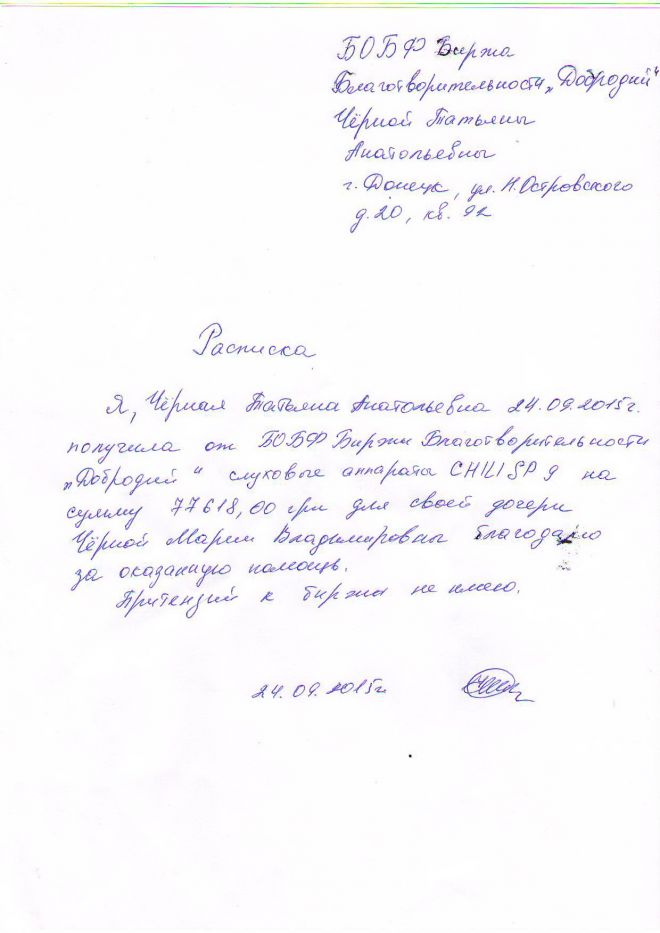 БОБФ Биржа
Благотворительности „Добродий“
Чёрной Татьяны
Анатольевны
г. Донецк, ул. Н.Островского
д.20, кв. 92
Расписка
Я, Чёрная Татьяна Анатольевна 24.09.2015г.
получила от БОБФ Биржи Благотворительности
„Добродий“ слуховые аппараты CHILI SP 9 на
сумму 77618,00 грн для своей дочери
Чёрной Марии Владимировны благодарю
за оказанную помощь.
Притензий к биржи не имею.
24.09.2015г